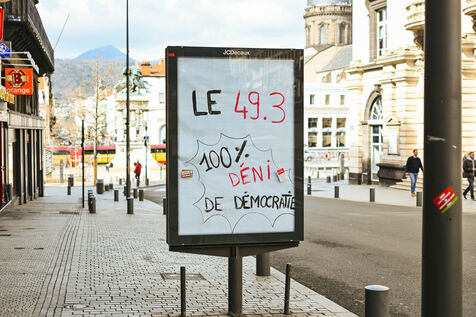 orange
JCDecaux
LE 49.3
100%
DÉNI
DE DÉMOCRATIE